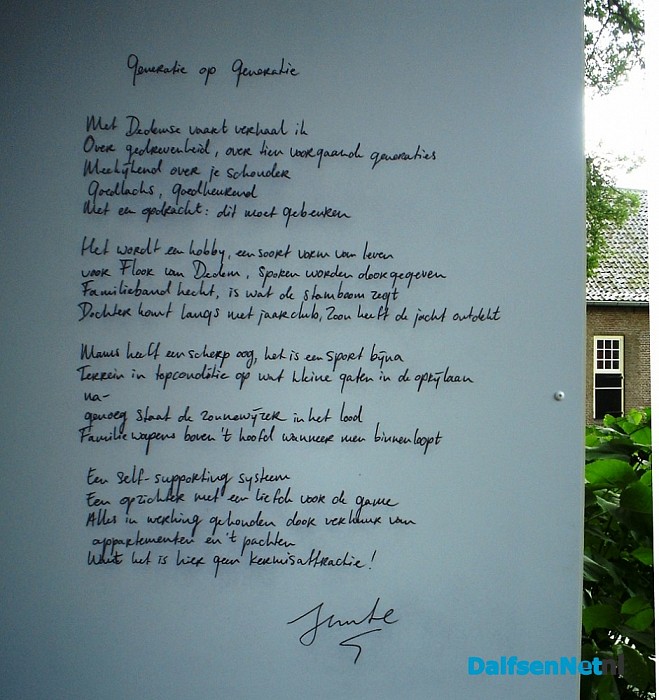 Generatie op Generatie
Met Dedemse vaart verhaal ik
Over gedrevenheid, over tien voorgaande generaties
Meekijkend over je schouder
Goedlachs, goedkeurend
Met een opdracht: dit moet gebeuren
Het wordt een hobby, een soort vorm van leven
voor Floor van Dedem, sporen worden doorgegeven
Familieband hecht, is wat de stamboom zegt
Dochter komt langs met jaarclub, Zoon heeft de jacht ontdekt
heeft een scherp oog, het is een sport bijna
Terrein in topconditie op wat kleine gaten in de oprijlaan
na-
genoeg staat de zonnewijzer in het lood
Familiewapens boven 't hoofd wanneer men binnenloopt
Een self-supporting systeem
Een opzichter met een liefde voor de game
Alles in werking gehouden door verhuur van
appartementen en 't pachten
Want het is hier geen kermisattractie!
DalfsenNet.nl